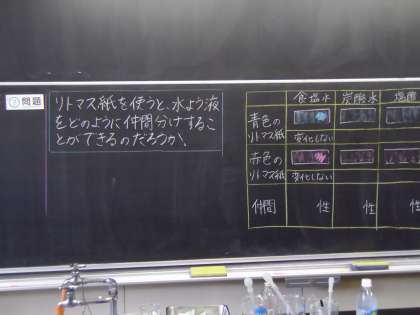 ?問題
リトマス紙を使うと、水よう液
をどのように仲間分けするこ
とができるのだろうか。
食塩水 炭酸水 塩酸
青色の
リトマス紙
変化しない
赤色の
リトマス紙
変化しない
仲間 性 性 性